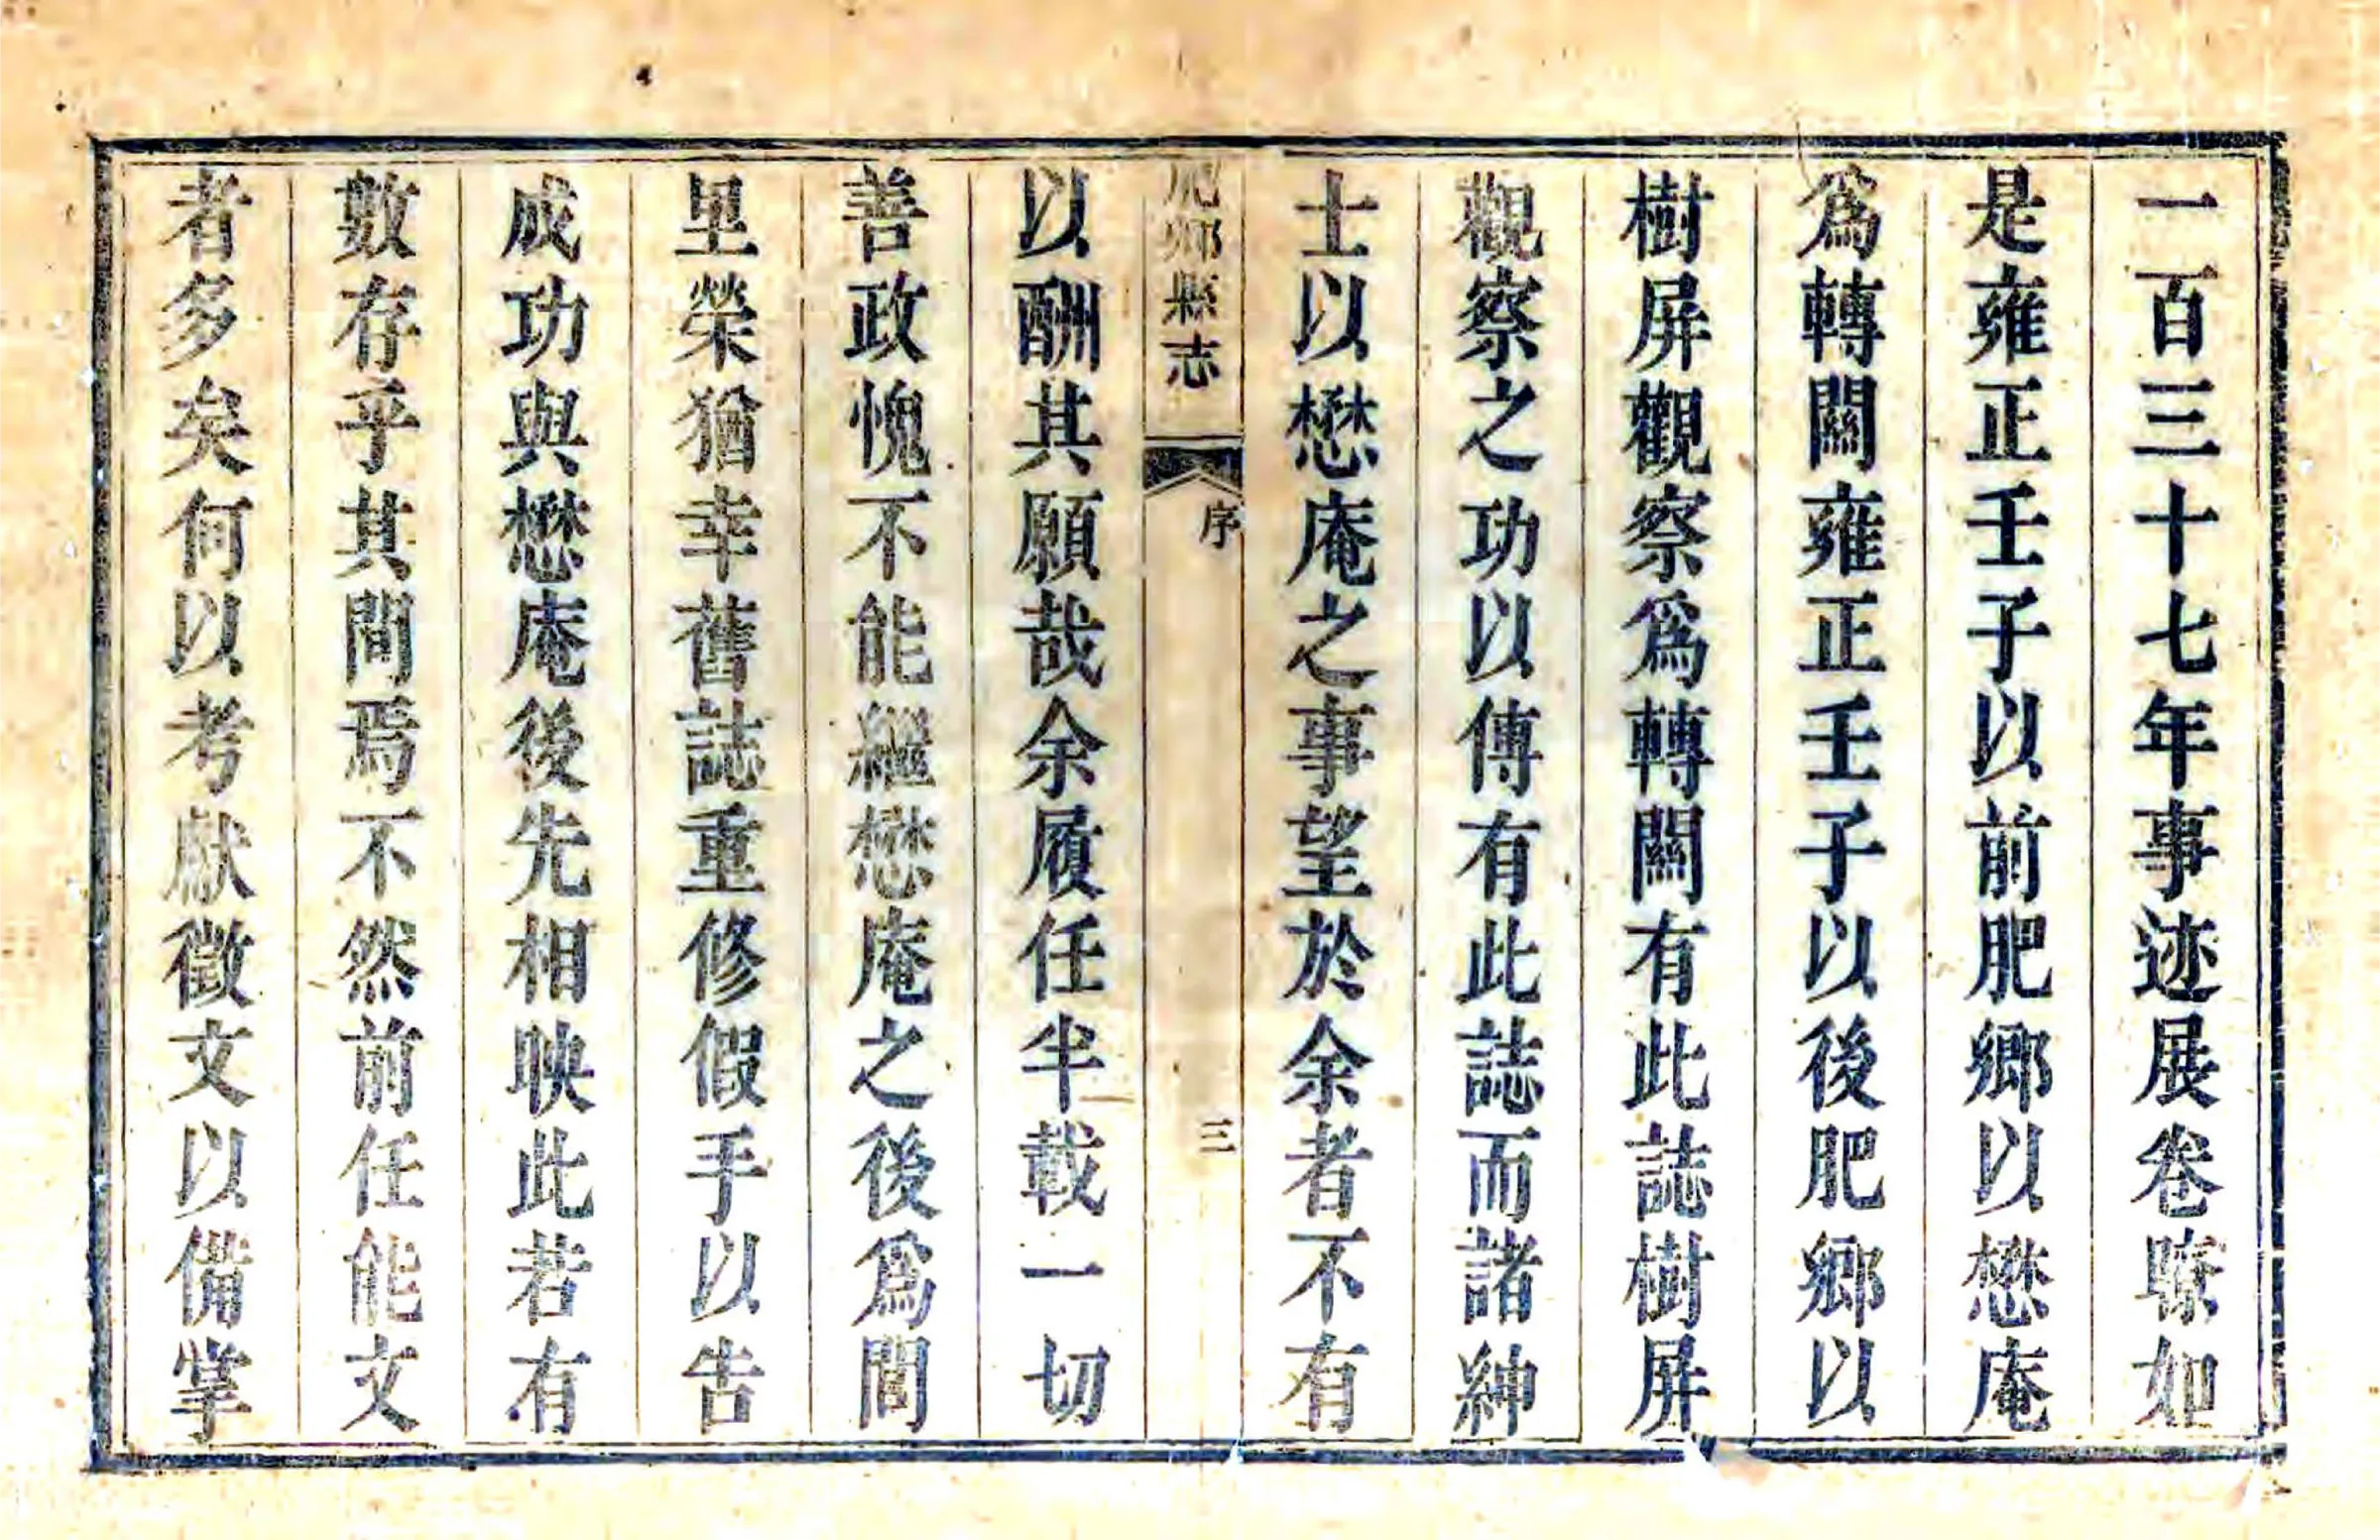 一百三十七年事迹展卷瞭如
是雍正壬子以前肥鄉以懋庵
爲轉關雍正壬子以後肥鄉以
樹屏觀察爲轉關有此誌樹屏
觀察之功以傳有此誌而諸紳
士以懋庵之事望於余者不有
肥鄉縣志
序
三
以酬其願哉余履任半載一切
善政愧不能繼懋庵之後爲閭
里榮猶幸舊誌重修假手以告
成功與懋庵後先相映此若有
數存乎其間焉不然前任能文
者多矣何以考獻徵文以備掌